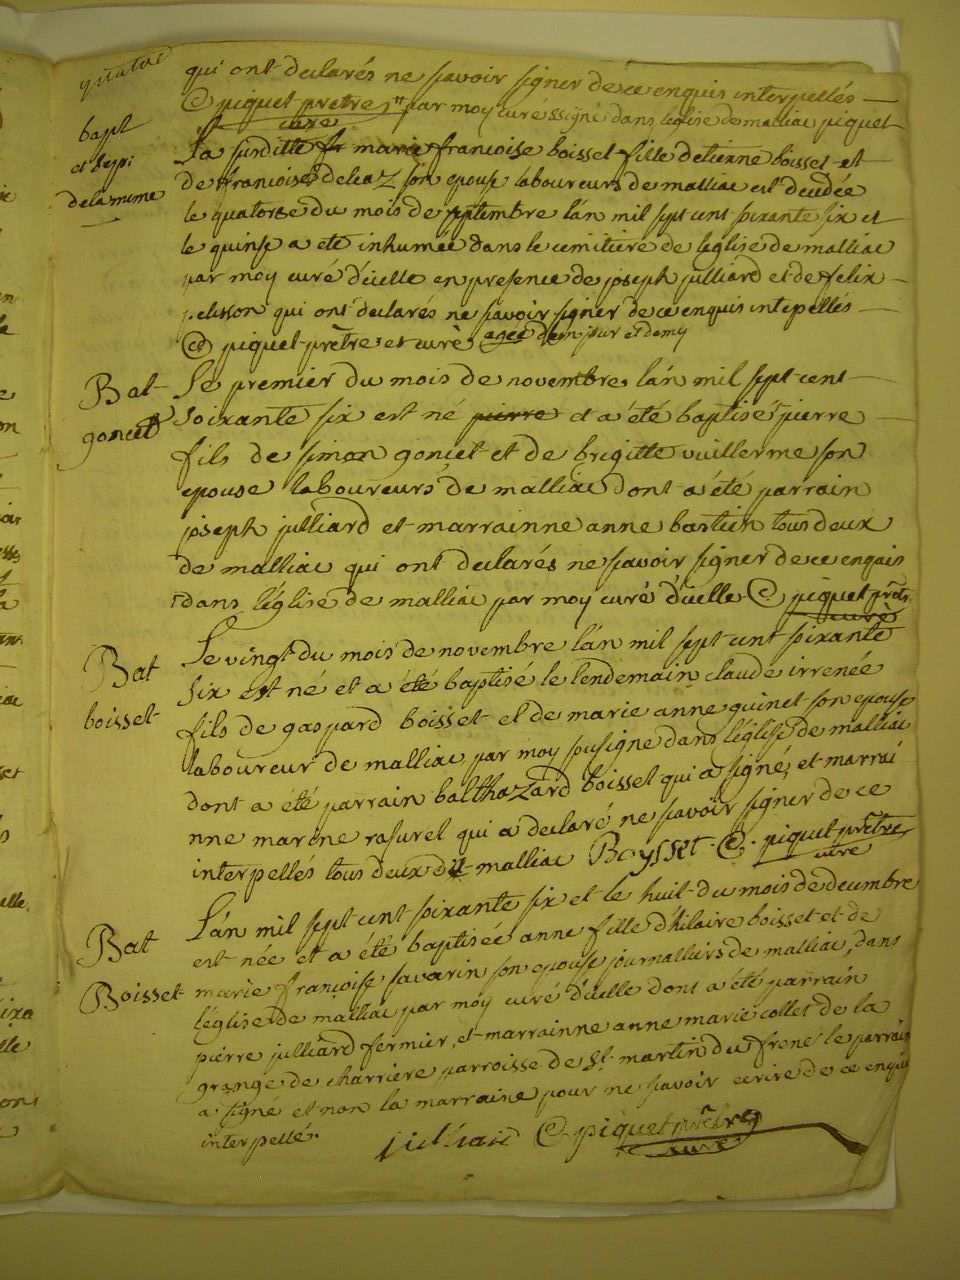 quatre
qui ont declarés ne savoir signer de ce enquis interpellés
piquet pretre par moy curé ssigné dans leglise de malliac piquet
curé
bapt
et sepi
de la meme
La surditte marie francoise boisset fille detienne boisset et
de francoise deleaz son epouse laboureurs de malliac est decedée
le quatorse du mois de septembre lán mil sept cent soixante six et
le quinse a eté inhumée dans le cemitiere de leglise de malliac
par moy curé dicelle en presence de joseph julliard et de felix
pelisson qui ont declarés ne savoir signer de ce enquis intepellés
piquet prêtre et curé agée dem jour et demy
Bat
goncet
Le premier du mois de novembre lán mil sept cent
soixante six est né pierre et a été baptisé pierre
fils de simon goncet et de brigitte vuillerme son
epouse laboureurs de malliac dont a été parrain
joseph julliard et marrainne anne bastien tous deux
de malliac qui ont declarés ne savoir signer de ce enquis
dans léglise de malliac par moy curé dicelle piquet prêtre
curé
Bat
boisset
Le vingt du mois de novembre lán mil sept cent soixante
six est né et a été baptisé le lendemain claude irrenée
fils de gaspard boisset et de marie anne guinet son epouse
laboureur de malliac par moy sousigne dans léglise de malliac
dont a été parrain balthazard boisset qui a signé, et marrai
nne marine rasurel qui a declaré ne savoir signer de ce
interpellés tous deux de malliac Boysset piquet prêtre
curé
Bat
Boisset
Lán mil sept cent soixante six et le huit du mois de decembre
est née et a été baptisée anne fille dhilaire boisset et de
marie françoise savarin son epouse journalliers de malliac, dans
léglise de malliac par moy curé dicelle dont a été parrain
pierre julliard fermier, et marrainne anne marie collet de la
grange de charriere parroisse de st martin du frene le parrain
a signé et non la marraine pour ne savoir ecrire de ce enquis
interpellé
julliard piquet prêtre
curé